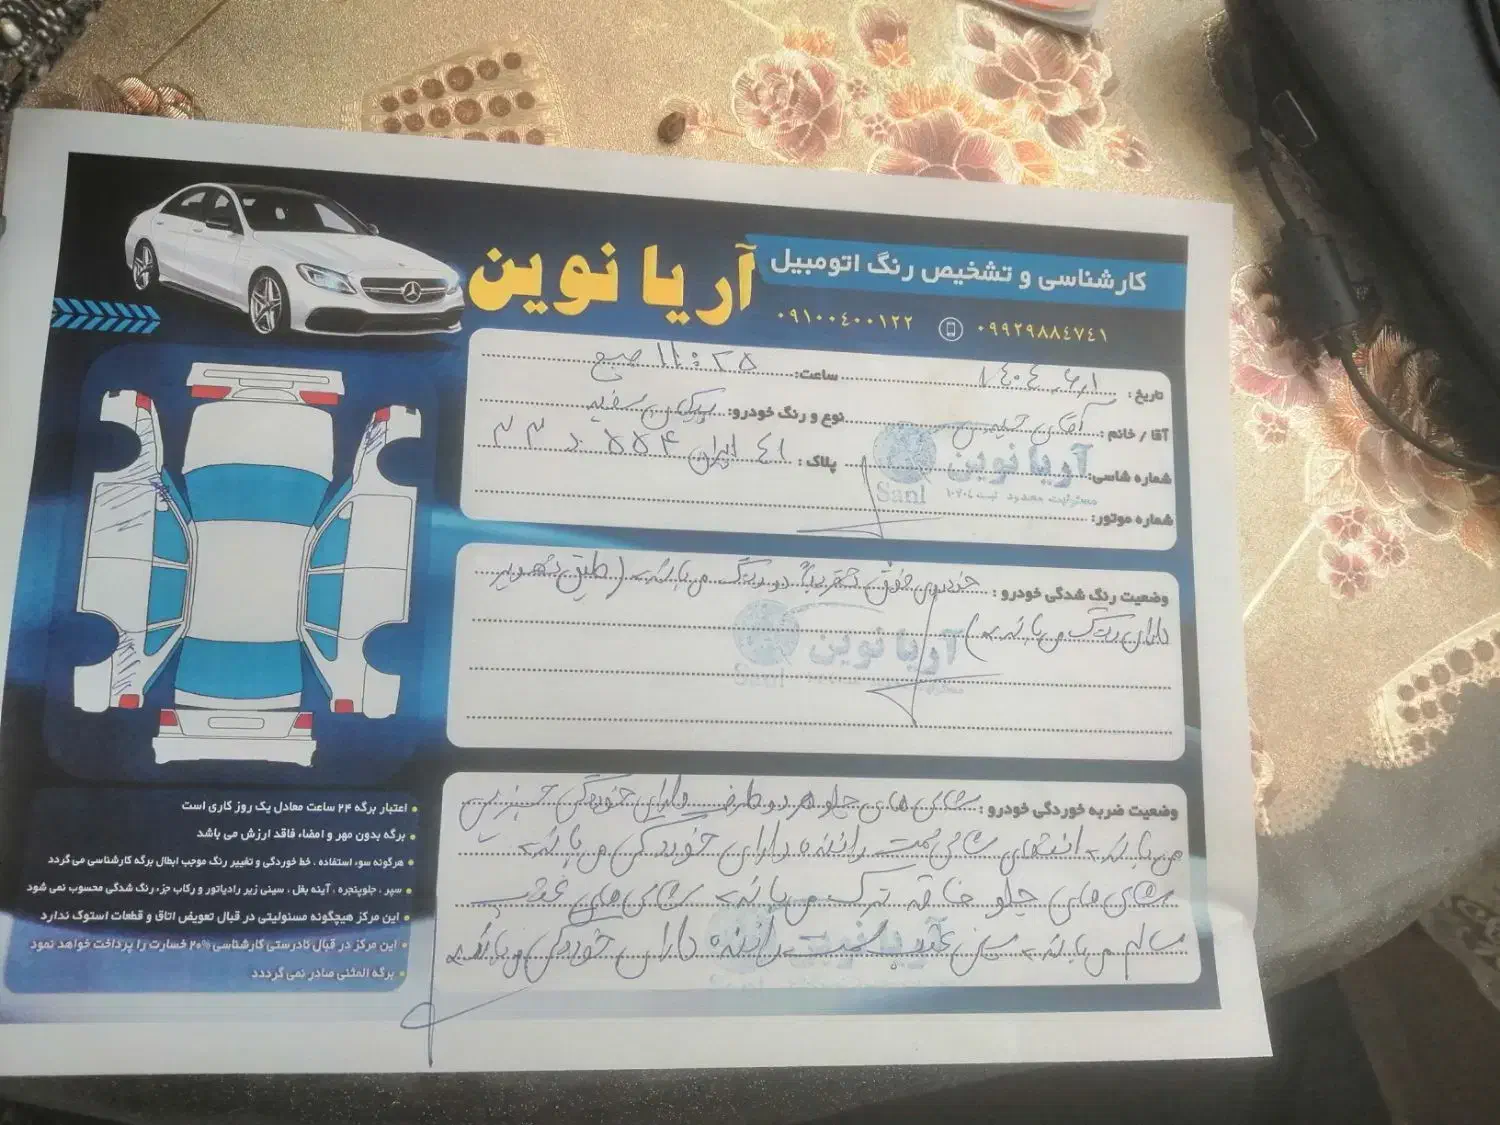 کارشناسی و تشخیص رنگ اتومبیل
آریا نوین
۰۹۹۲۹۸۸۴۷۴۱
۰۹۱۰۰۴۰۰۱۲۲
تاریخ : ۱۴۰۴,۶,۱ ساعت: ۱۱:۲۵ صبح
آقا / خانم : آقای نوع و رنگ خودرو: سفید
شماره شاسی: پلاک :
شماره موتور:
آریا نوین
Sanl
مسئولیت محدود ثبت ۱۰۷۰۴
وضعیت رنگ شدگی خودرو : خودروی فوق تقریباً دور رنگ می باشد. (طبق تصویر
دارای رنگ می باشد.)
آریا نوین
وضعیت ضربه خوردگی خودرو : شاسی های جلو هر دو طرف دارای خوردگی جزئی
می باشد. انتهای شاسی سمت راننده دارای خوردگی می باشد.
می باشد. های عقب
سالم می باشد. عقب سمت راننده دارای خوردگی می باشد.
اعتبار برگه ۲۴ ساعت معادل یک روز کاری است
برگه بدون مهر و امضاء فاقد ارزش می باشد
هرگونه سوء استفاده ، خط خوردگی و تغییر رنگ موجب ابطال برگه کارشناسی می گردد
سپر ، جلوپنجره ، آینه بغل ، سینی زیر رادیاتور و رکاب جزء رنگ شدگی محسوب نمی شود
این مرکز هیچگونه مسئولیتی در قبال تعویض اتاق و قطعات استوک ندارد
این مرکز در قبال نادرستی کارشناسی ۲۰% خسارت را پرداخت خواهد نمود
برگه المثنی صادر نمی گرددد